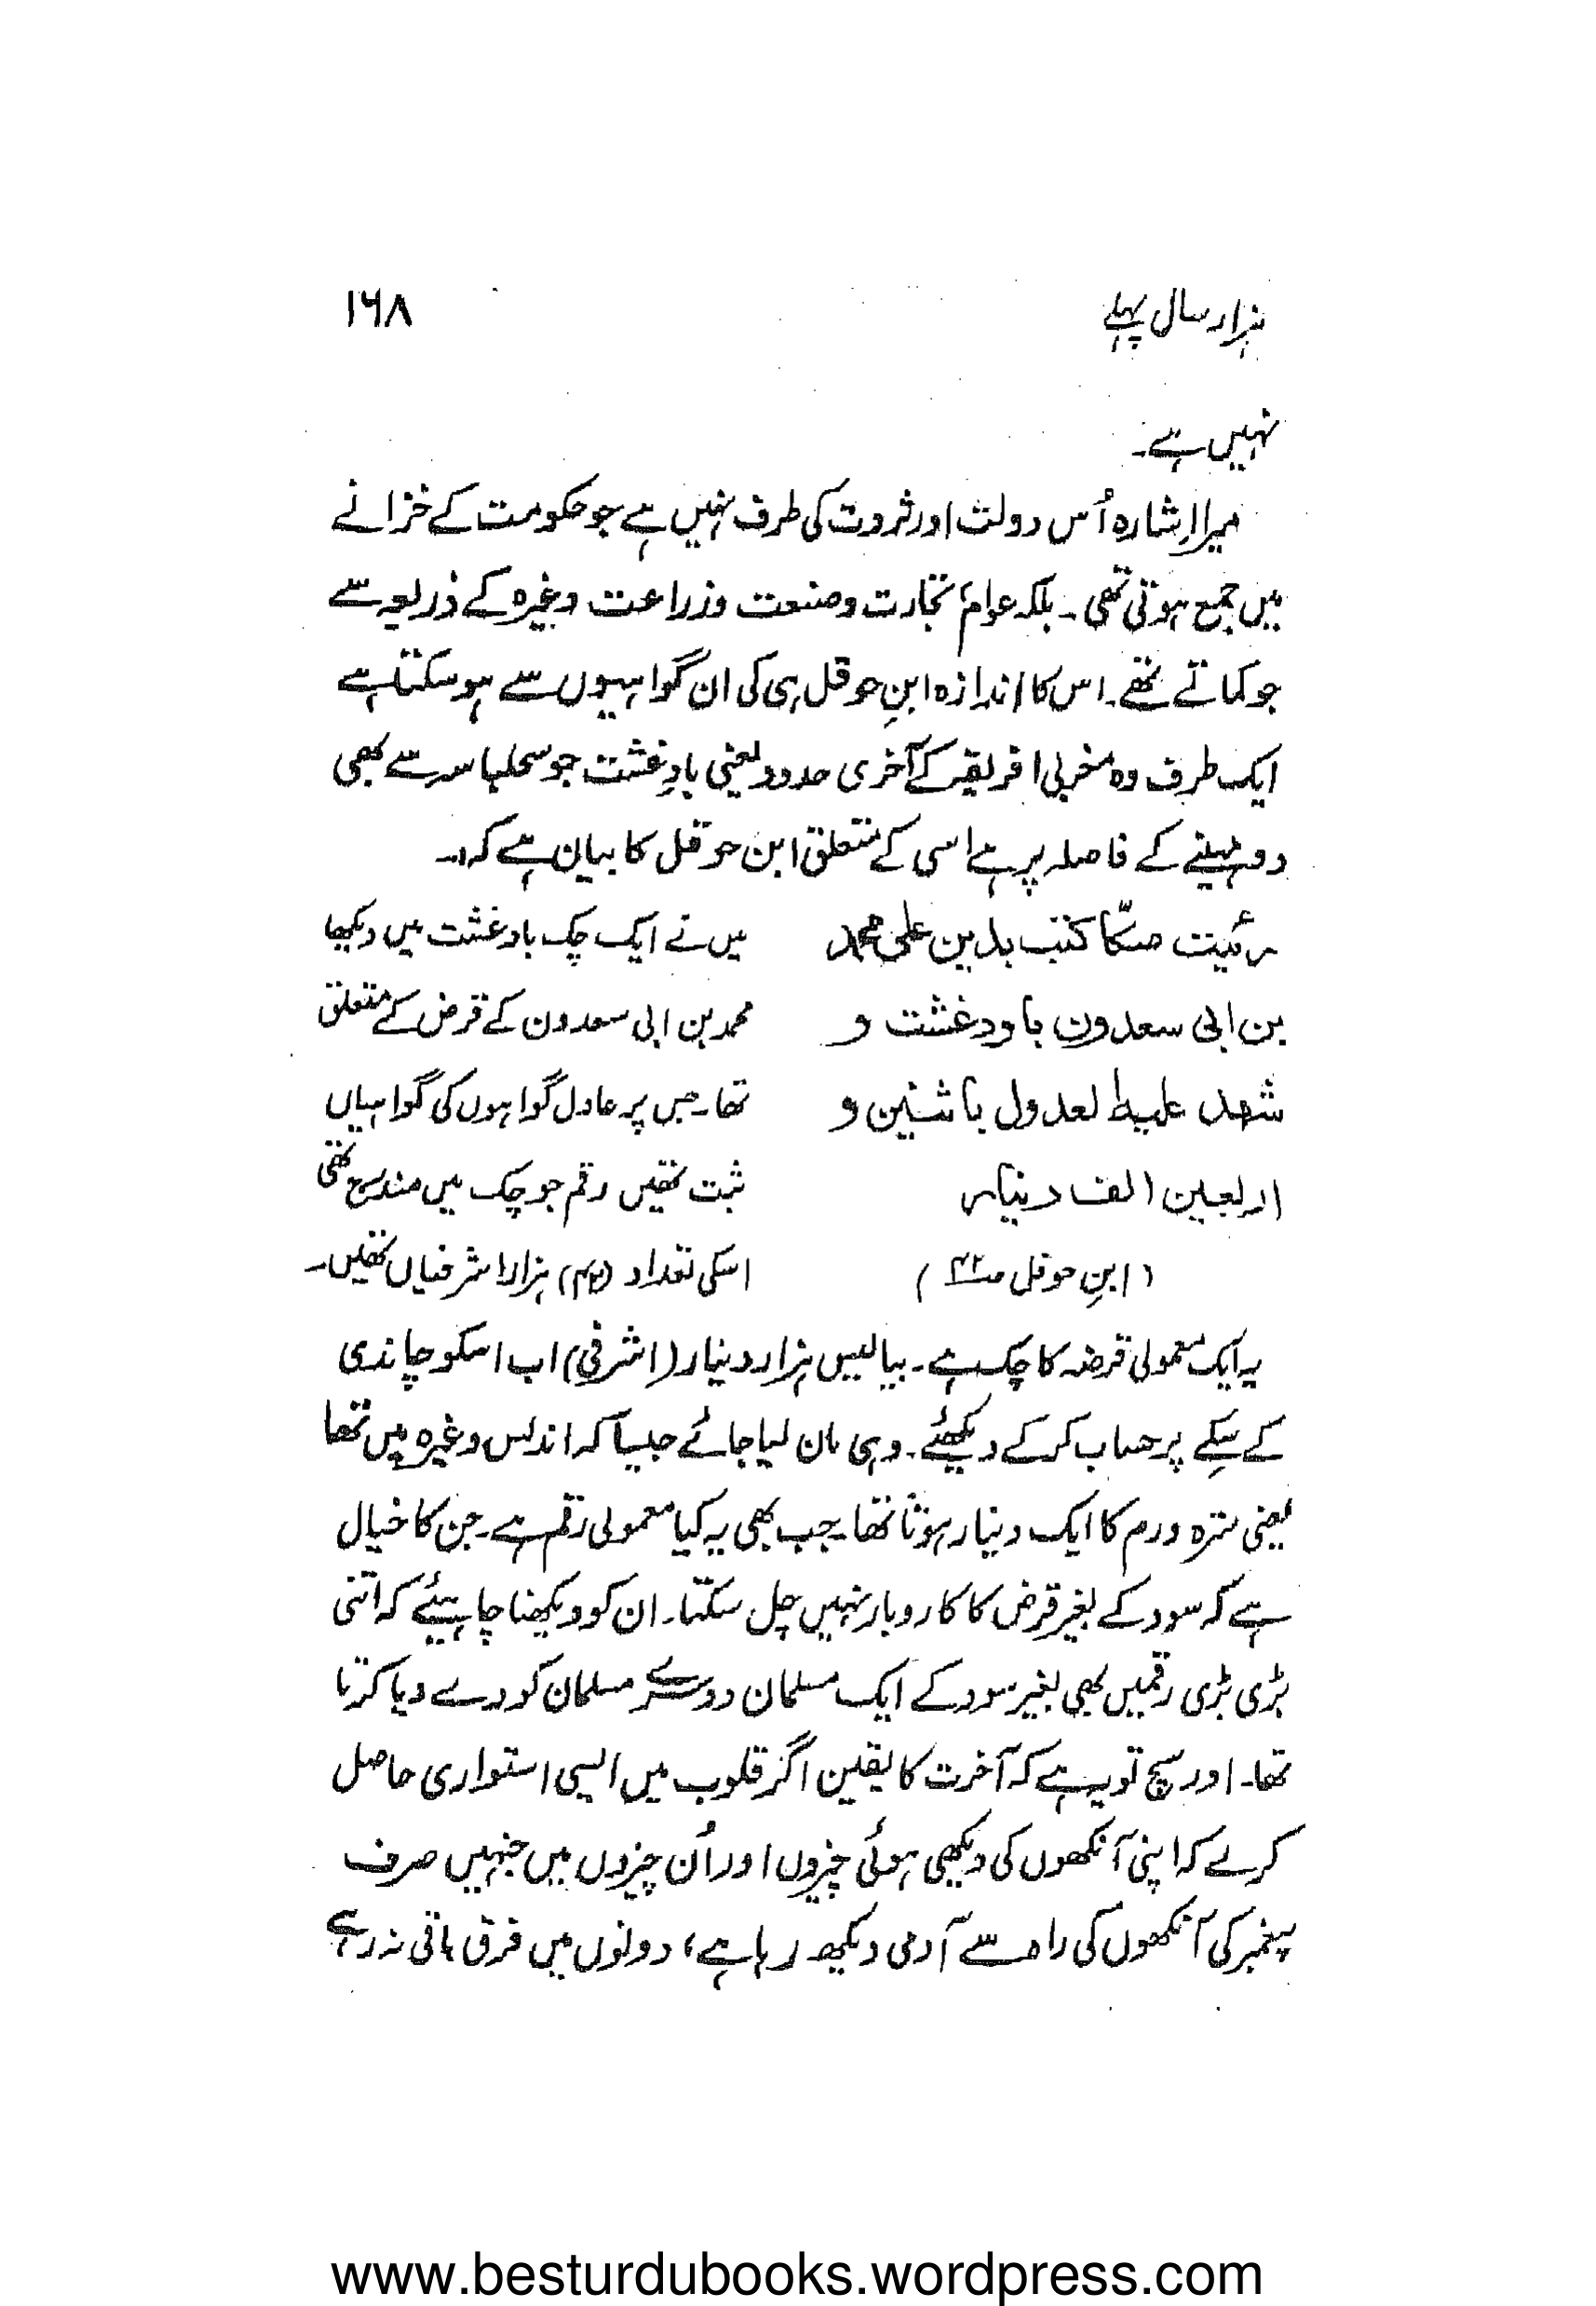 ہزار سال پہلے
۱۶۸
نہیں ہے۔
میرا اشارہ اُس دولت اور ثروت کی طرف نہیں ہے جو حکومت کے خزانے
میں جمع ہوتی تھی۔ بلکہ عوام تجارت و صنعت و زراعت وغیرہ کے ذریعہ سے
جو کماتے تھے۔ اس کا اندازہ ابنِ حوقل ہی کی ان گواہیوں سے ہو سکتا ہے
ایک طرف وہ مغربی افریقہ کے آخری حدود یعنی بادغشت جو سجلماسہ سے بھی
دو مہینے کے فاصلہ پر ہے اسی کے متعلق ابن حوقل کا بیان ہے کہ:۔
رئیت صکّا کتب بدین علی محمد
بن ابی سعدون باودغشت و
شھد علیہ العدول باثنین و
اربعین الف دینار
(ابنِ حوقل ص۴۲)
میں نے ایک چک بادغشت میں دیکھا
محمد بن ابی سعدون کے قرض کے متعلق
تھا۔ جس پر عادل گواہوں کی گواہیاں
ثبت تھیں رقم جو چک میں مندرج تھی
اسکی تعداد (۴۲) ہزار اشرفیاں تھیں۔
یہ ایک معمولی قرضہ کا چک ہے۔ بیالیس ہزار دینار (اشرفی) اب اسکو چاندی
کے سکے پر حساب کر کے دیکھئے۔ وہی مان لیا جائے جیسا کہ اندلس وغیرہ میں تھا
یعنی سترہ درم کا ایک دینار ہوتا تھا۔ جب بھی یہ کیا معمولی رقم ہے۔ جن کا خیال
ہے کہ سود کے بغیر قرض کا کاروبار نہیں چل سکتا۔ ان کو دیکھنا چاہیئے کہ اتنی
بڑی بڑی رقمیں بھی بغیر سود کے ایک مسلمان دوسرے مسلمان کو دے دیا کرتا
تھا۔ اور سچ تو یہ ہے کہ آخرت کا یقین اگر قلوب میں ایسی استواری حاصل
کرلے کہ اپنی آنکھوں کی دیکھی ہوئی چیزوں اور اُن چیزوں میں جنہیں صرف
پیغمبر کی آنکھوں کی راہ سے آدمی دیکھ رہا ہے، دونوں میں فرق باقی نہ رہے
www.besturdubooks.wordpress.com